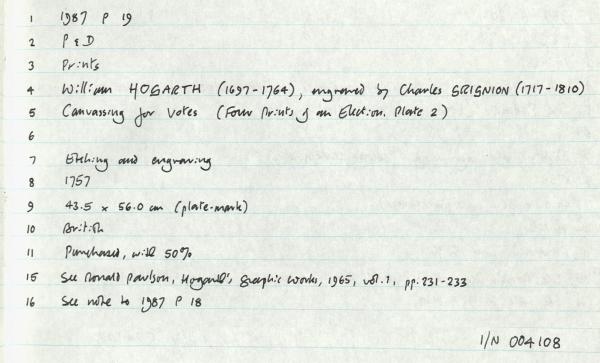 1 1987 P 19
2 P & D
3 Prints
4 William HOGARTH (1697-1764), engraved by Charles GRIGNION (1717-1810)
5 Canvassing for Votes (Four Prints of an Election. Plate 2)
6
7 Etching and engraving
8 1757
9 43.5 x 56.0 cm (plate-mark)
10 British
11 Purchased, with 50%
15 See Ronald Paulson, Hogarth's Graphic Works, 1965, vol. 1, pp. 231-233
16 See note to 1987 P 18
I/N 004108